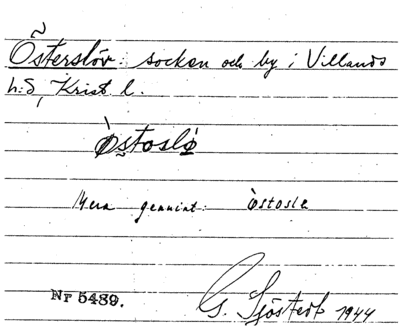 Österslöv: socken och by i Villands
h:d, Krist. l.
Östoslö
Mera genuint: östosle
Nr 5489.
G. Sjöstedt 1944